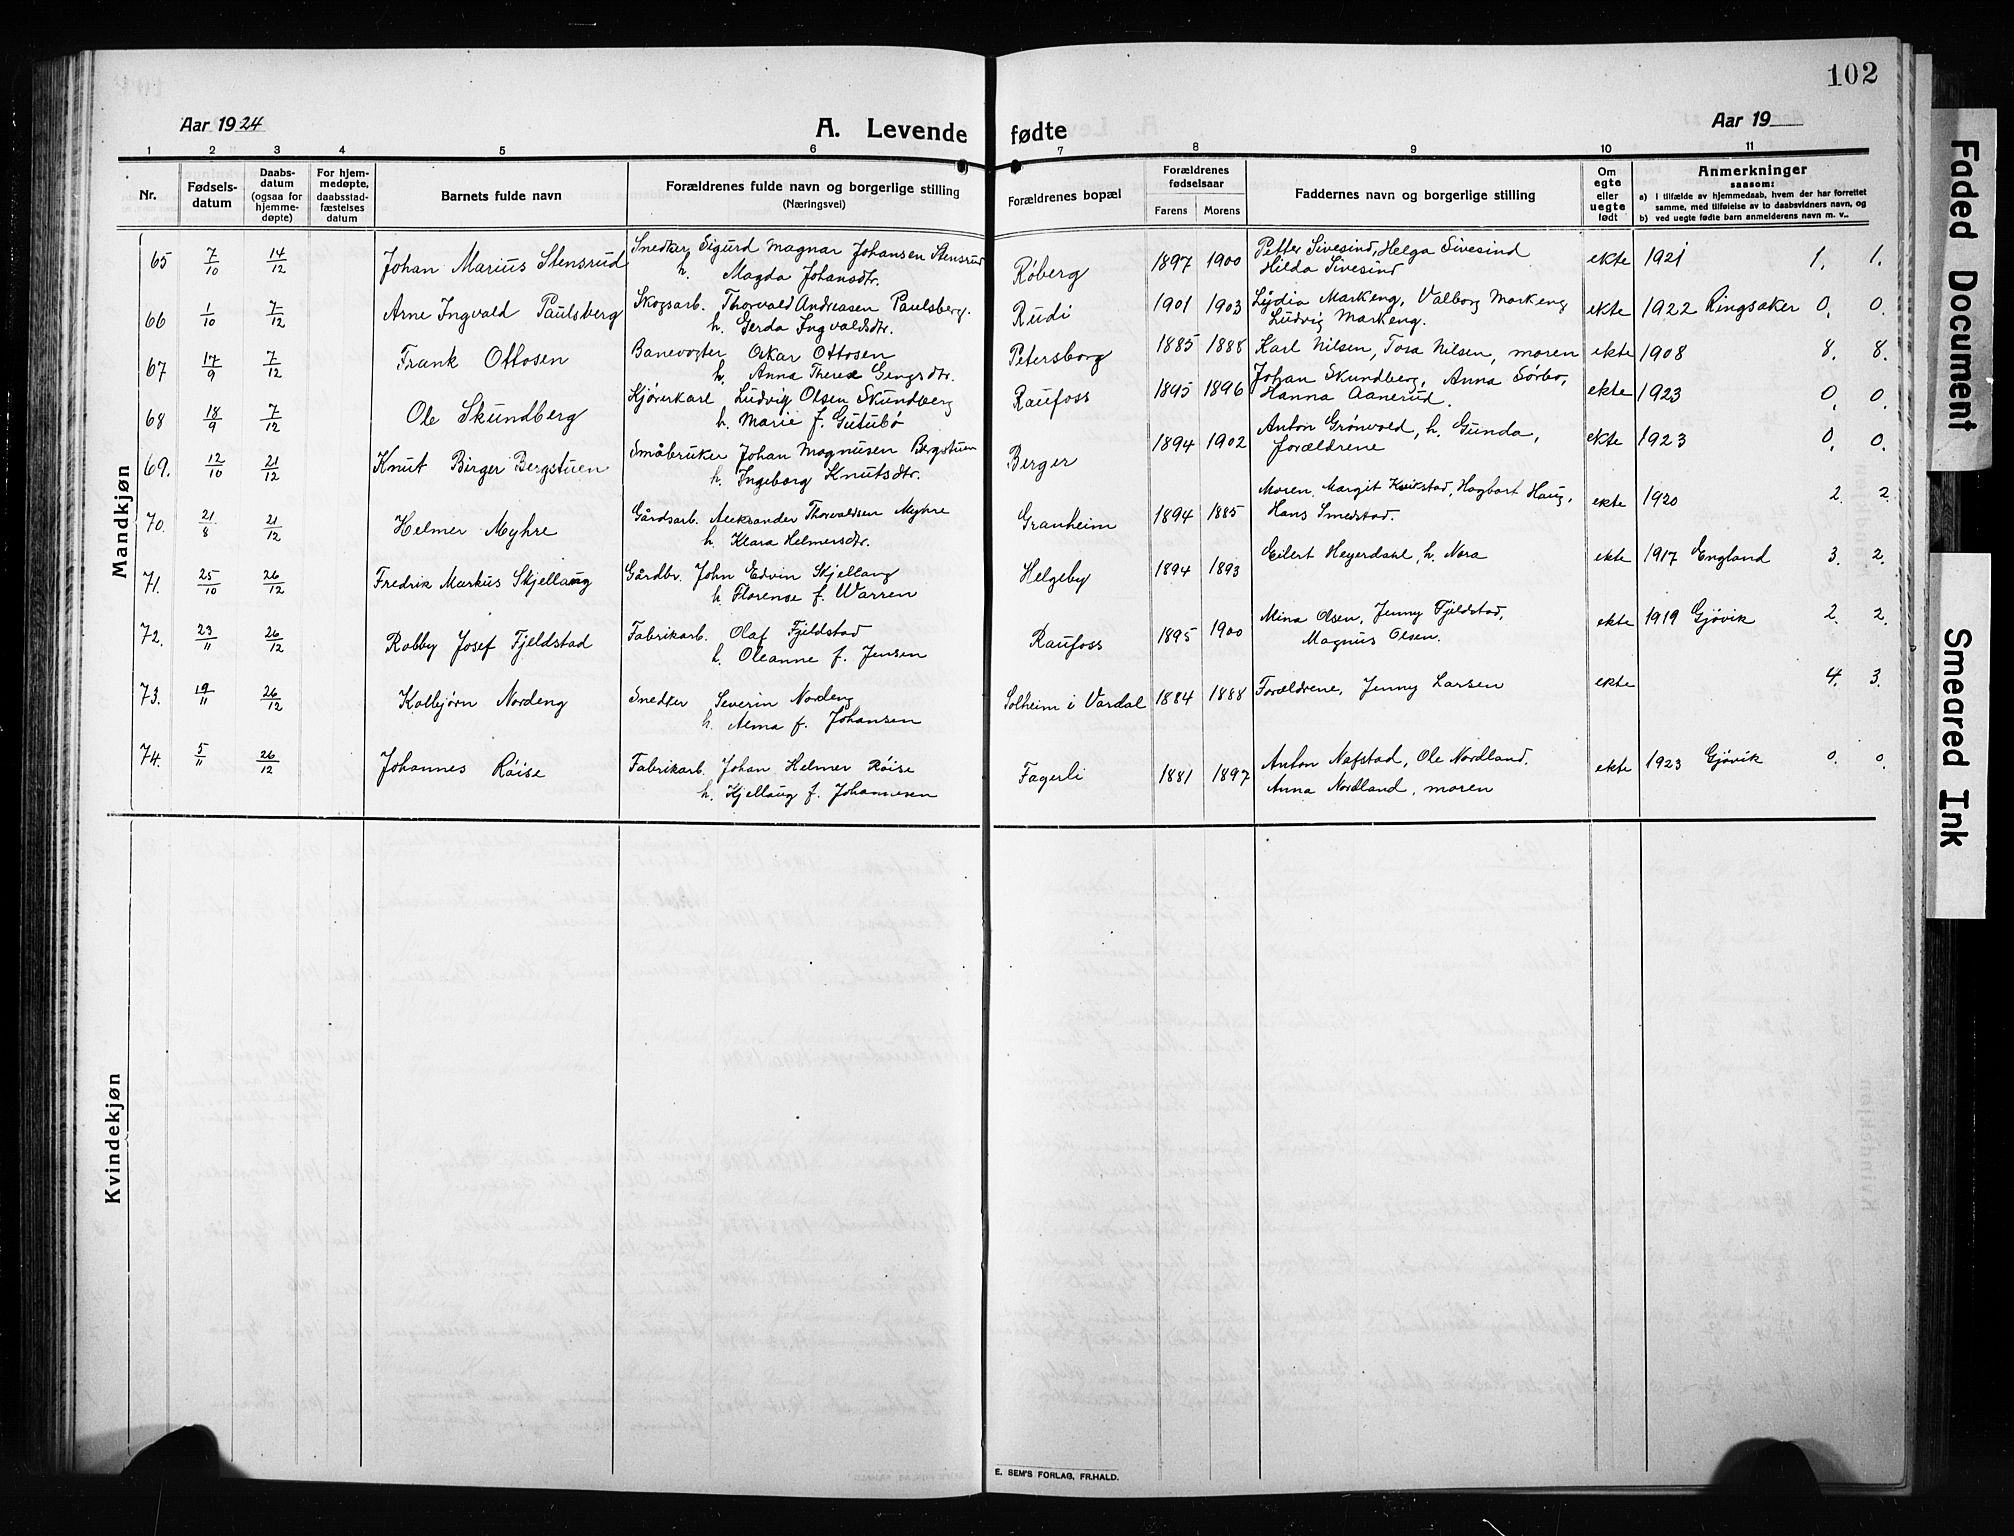 102
Aar 1924
A. Levende fødte
Aar 19
1 2 3 4 5 6 7 8 9 10 11
Nr.
Fødsels-
datum
Daabs-
datum
(ogsaa for
hjemme-
døpte)
For hjem-
medøpte,
daabsstad-
fæstelses
datum
Barnets fulde navn
Forældrenes fulde navn og borgerlige stilling
(Næringsvei)
Forældrenes bopæl
Forældrenes
fødselsaar
Farens Morens
Faddernes navn og borgerlige stilling
Om
egte
eller
uegte
født
Anmerkninger
saasom:
a) I tilfælde av hjemmedaab, hvem der har forrettet
samme, med tilføielse av to daabsvidners navn, og
b) ved uegte fødte barn anmelderens navn m. v..
Mandkjøn
65 7/10 14/12 Johan Marius Stensrud Snedker Sigurd Magnar Johansen Stensrud
h. Magda Johansdtr. Røberg 1897 1900 Petter Sivesind, Helga Sivesind
Hilda Sivesind ekte 1921 1. 1.
66 1/10 7/12 Arne Ingvald Paulsberg Skogsarb. Thorvald Andreasen Paulsberg.
h. Gerda Ingvaldsdtr. Rudi 1901 1903 Lydia Markeng, Valborg Markeng
Ludvig Markeng. ekte 1922 Ringsaker 0. 0.
67 17/9 7/12 Frank Ottosen Banevogter Oskar Ottosen
h. Anna Therese Petersborg 1885 1888 Karl Nilsen, Tora Nilsen, moren ekte 1908 8. 8.
68 18/9 7/12 Ole Skundberg Kjørerkarl Ludvig Olsen Skundberg
h. Marie f. Gutubø Raufoss 1895 1896 Johan Skundberg, Anna Sørbo,
Hanna Aanerud. ekte 1923 0. 0.
69. 12/10 21/12 Knut Birger Bergstuen Småbruker Johan Magnusen Bergstuen
h. Ingeborg Knutsdtr. Berger 1894 1902 Anton Grønvold, h. Gunda,
forældrene ekte 1923 0. 0.
70. 21/8 21/12 Helmer Myhre Gårdsarb. Aleksander Thorvaldsen Myhre
h. Klara Helmersdtr. Granheim 1894 1885 Moren, Margit Kvikstad, Hagbart Haug,
Hans Smedstad. ekte 1920 2. 2
71. 25/10 26/12 Fredrik Markus Skjellaug Gårdbr. John Edvin Skjellaug
h. Florense f. Warren Helgeby 1894 1893 Eilert Heyerdahl, h. Nora ekte 1917 England 3. 2.
72. 23/11 26/12 Robby Josef Fjeldstad Fabrikarb. Olaf Fjeldstad
h. Oleanne f. Jensen Raufoss 1895 1900 Mina Olsen, Jenny Fjeldstad,
Magnus Olsen. ekte 1919 Gjøvik 2. 2.
73. 19/11 26/12 Kolbjørn Nordeng Snedker Severin Nordeng
h. Alma f. Johansen Solheim i Vardal 1884 1888 Forældrene, Jenny Larsen ekte 4. 3.
74. 5/11 26/12 Johannes Røise Fabrikarb. Johan Helmer Røise
h. Kjellaug f. Johannesen Fagerli 1881 1897 Anton Nafstad, Ole Nordland,
Anna Nordland, moren ekte 1923 Gjøvik 0. 0.
Kvindekjøn
E. SEM'S FORLAG, FR.HALD.
Faded Document
Smeared Ink